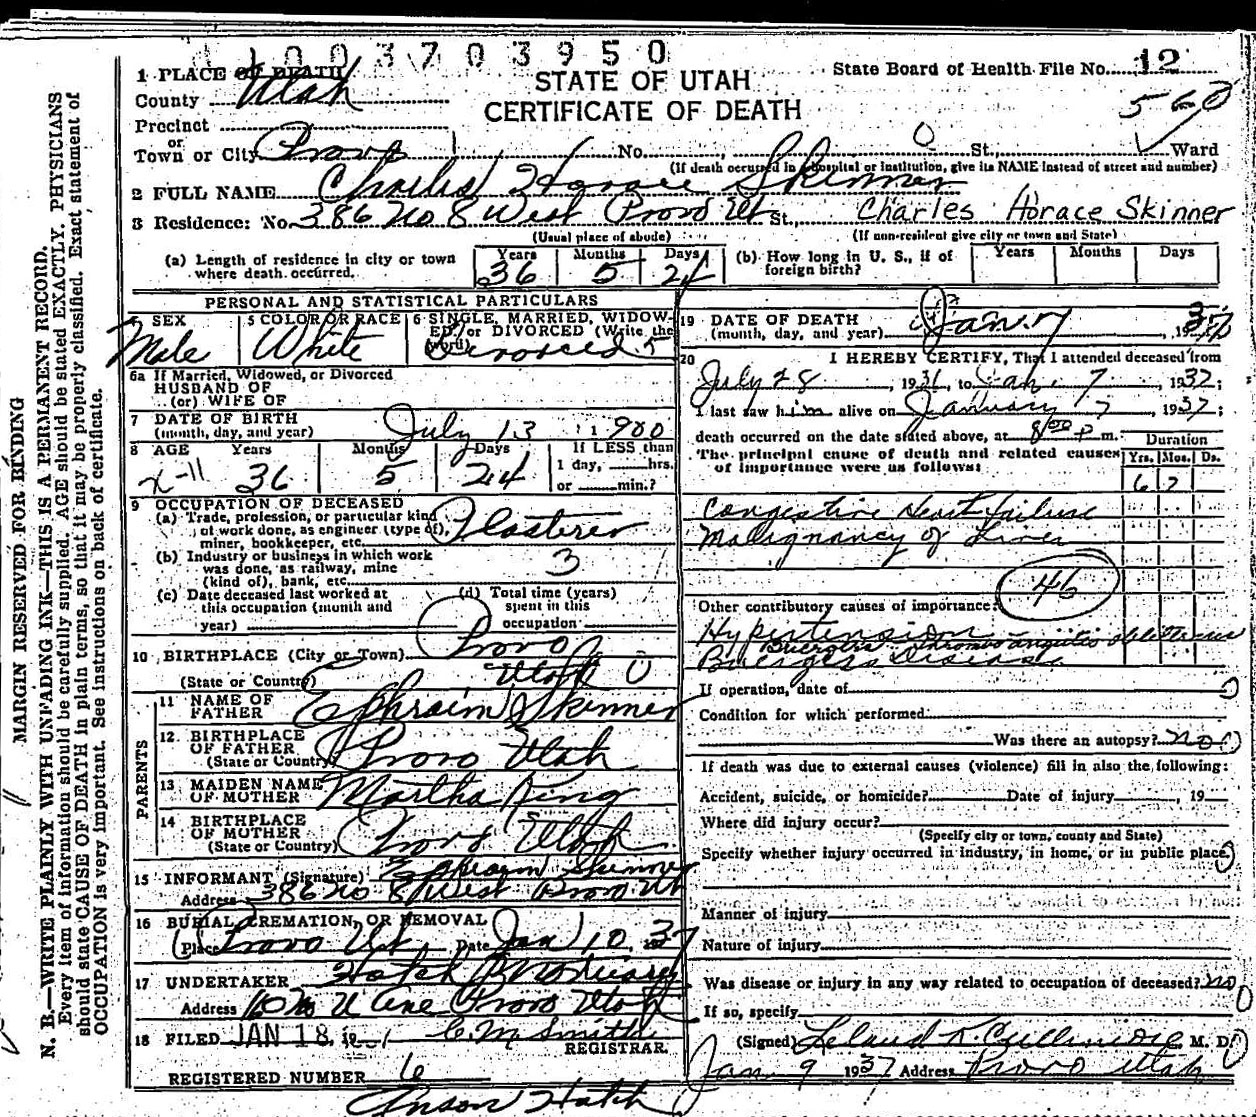 1003703950
STATE OF UTAH
CERTIFICATE OF DEATH
State Board of Health File No. 12
560
1 PLACE OF DEATH
County Utah
Precinct
or
Town or City Provo No. 0 St., Ward
(If death occurred in hospital or institution, give its NAME instead of street and number)
2 FULL NAME Charles Horace Skinner
3 Residence: No. 386 No 8 West Provo Ut St., Charles Horace Skinner
(Usual place of abode) (If non-resident give city or town and State)
(a) Length of residence in city or town where death occurred. Years 36 Months 5 Days 24
(b) How long in U. S., if of foreign birth? Years Months Days
PERSONAL AND STATISTICAL PARTICULARS
SEX Male
5 COLOR OR RACE White
6 SINGLE, MARRIED, WIDOWED, or DIVORCED (Write the word) Divorced 5
6a If Married, Widowed, or Divorced
HUSBAND OF
(or) WIFE OF
7 DATE OF BIRTH
(month, day, and year) July 13 1900
8 AGE Years 36 Months 5 Days 24
x-11
If LESS than
1 day, hrs.
or min.?
9 OCCUPATION OF DECEASED
(a) Trade, profession, or particular kind of work done, as engineer (type of), miner, bookkeeper, etc. Plasterer
(b) Industry or business in which work was done, as railway, mine (kind of), bank, etc. 3
(c) Date deceased last worked at this occupation (month and year)
(d) Total time (years) spent in this occupation
10 BIRTHPLACE (City or Town) Provo
(State or Country) Utah 0
PARENTS
11 NAME OF FATHER Ephraim Skinner
12 BIRTHPLACE OF FATHER
(State or Country) Provo Utah
13 MAIDEN NAME OF MOTHER Martha King
14 BIRTHPLACE OF MOTHER
(State or Country) Provo Utah
15 INFORMANT (Signature) Ephraim Skinner
Address 386 No 8 West Provo Ut
16 BURIAL, CREMATION, OR REMOVAL
Place Provo Ut. Date Jan 10, 1937
17 UNDERTAKER Hatch Mortuary
Address Provo Utah
18 FILED JAN 18, 19 C. M. Smith
REGISTRAR.
REGISTERED NUMBER 6
Anson Hatch
19 DATE OF DEATH
(month, day, and year) Jan. 7, 1937
20 I HEREBY CERTIFY, That I attended deceased from
July 28, 1936, to Jan. 7, 1937;
I last saw him alive on January 7, 1937;
death occurred on the date stated above, at 8:00 P m.
Duration
Yrs. Mos. Ds.
6 7
The principal cause of death and related causes of importance were as follows:
Congestive Heart failure
Malignancy of Liver
46
Other contributory causes of importance:
Hypertension
Buergers thrombo angiitis obliterans
Buergers Disease
If operation, date of 0
Condition for which performed
Was there an autopsy? no 0
If death was due to external causes (violence) fill in also the following:
Accident, suicide, or homicide? Date of injury , 19
Where did injury occur?
(Specify city or town, county and State)
Specify whether injury occurred in industry, in home, or in public place.
Manner of injury
Nature of injury
Was disease or injury in any way related to occupation of deceased? no 0
If so, specify
(Signed) Leland K. Cullimore, M. D.
Jan 9 1937 Address Provo Utah
MARGIN RESERVED FOR BINDING
N. B.—WRITE PLAINLY WITH UNFADING INK—THIS IS A PERMANENT RECORD.
Every item of information should be carefully supplied. AGE should be stated EXACTLY. PHYSICIANS
should state CAUSE OF DEATH in plain terms, so that it may be properly classified. Exact statement of
OCCUPATION is very important. See instructions on back of certificate.